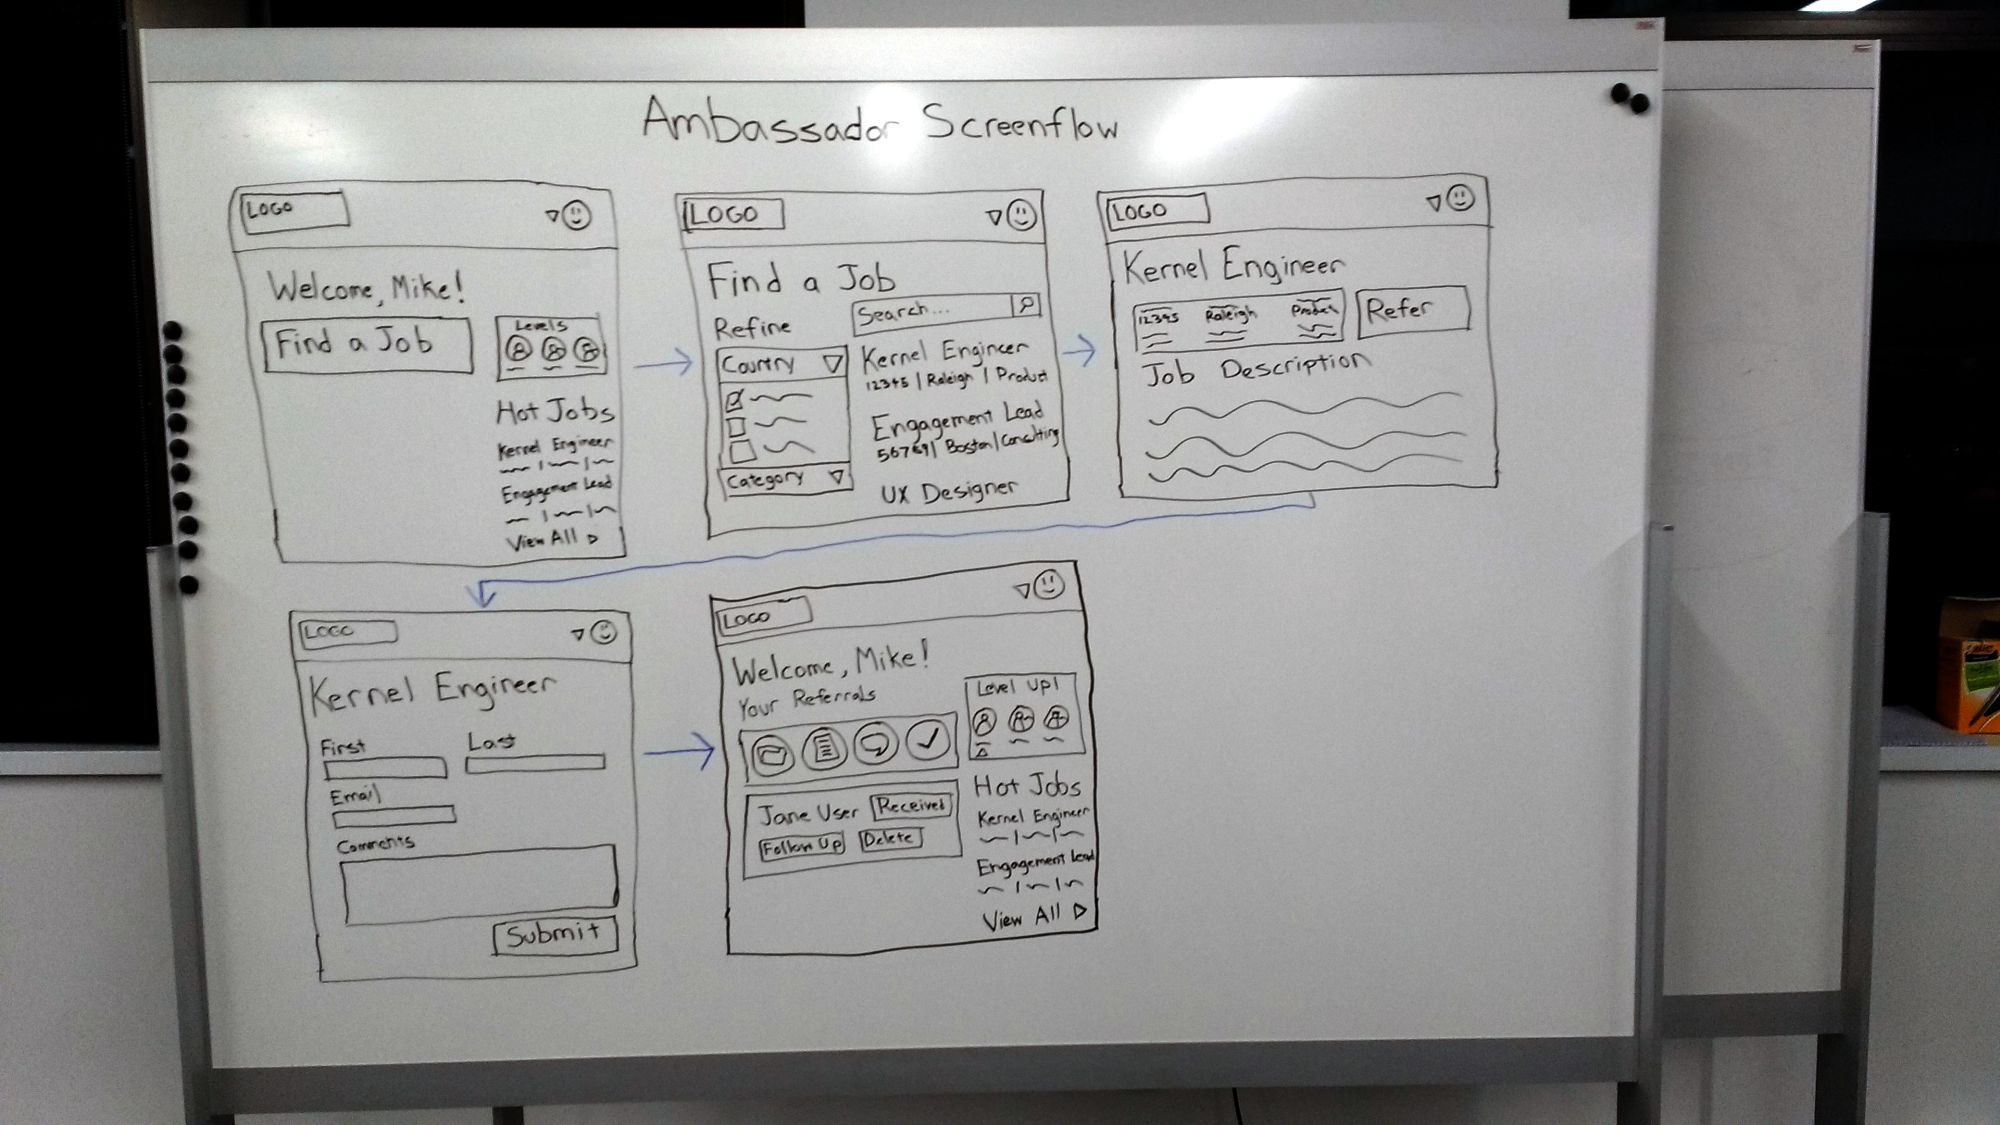 Ambassador Screenflow
LOGO
Welcome, Mike!
Find a Job
Levels
Hot Jobs
Kernel Engineer
Engagement Lead
View All
LOGO
Find a Job
Search...
Refine
Country
Category
Kernel Engineer
12345 | Raleigh | Product
Engagement Lead
56789 | Boston | Consulting
UX Designer
LOGO
Kernel Engineer
12345 Raleigh Product
Refer
Job Description
LOGO
Kernel Engineer
First Last
Email
Comments
Submit
LOGO
Welcome, Mike!
Your Referrals
Level Up!
Jane User Received
Follow Up Delete
Hot Jobs
Kernel Engineer
Engagement Lead
View All